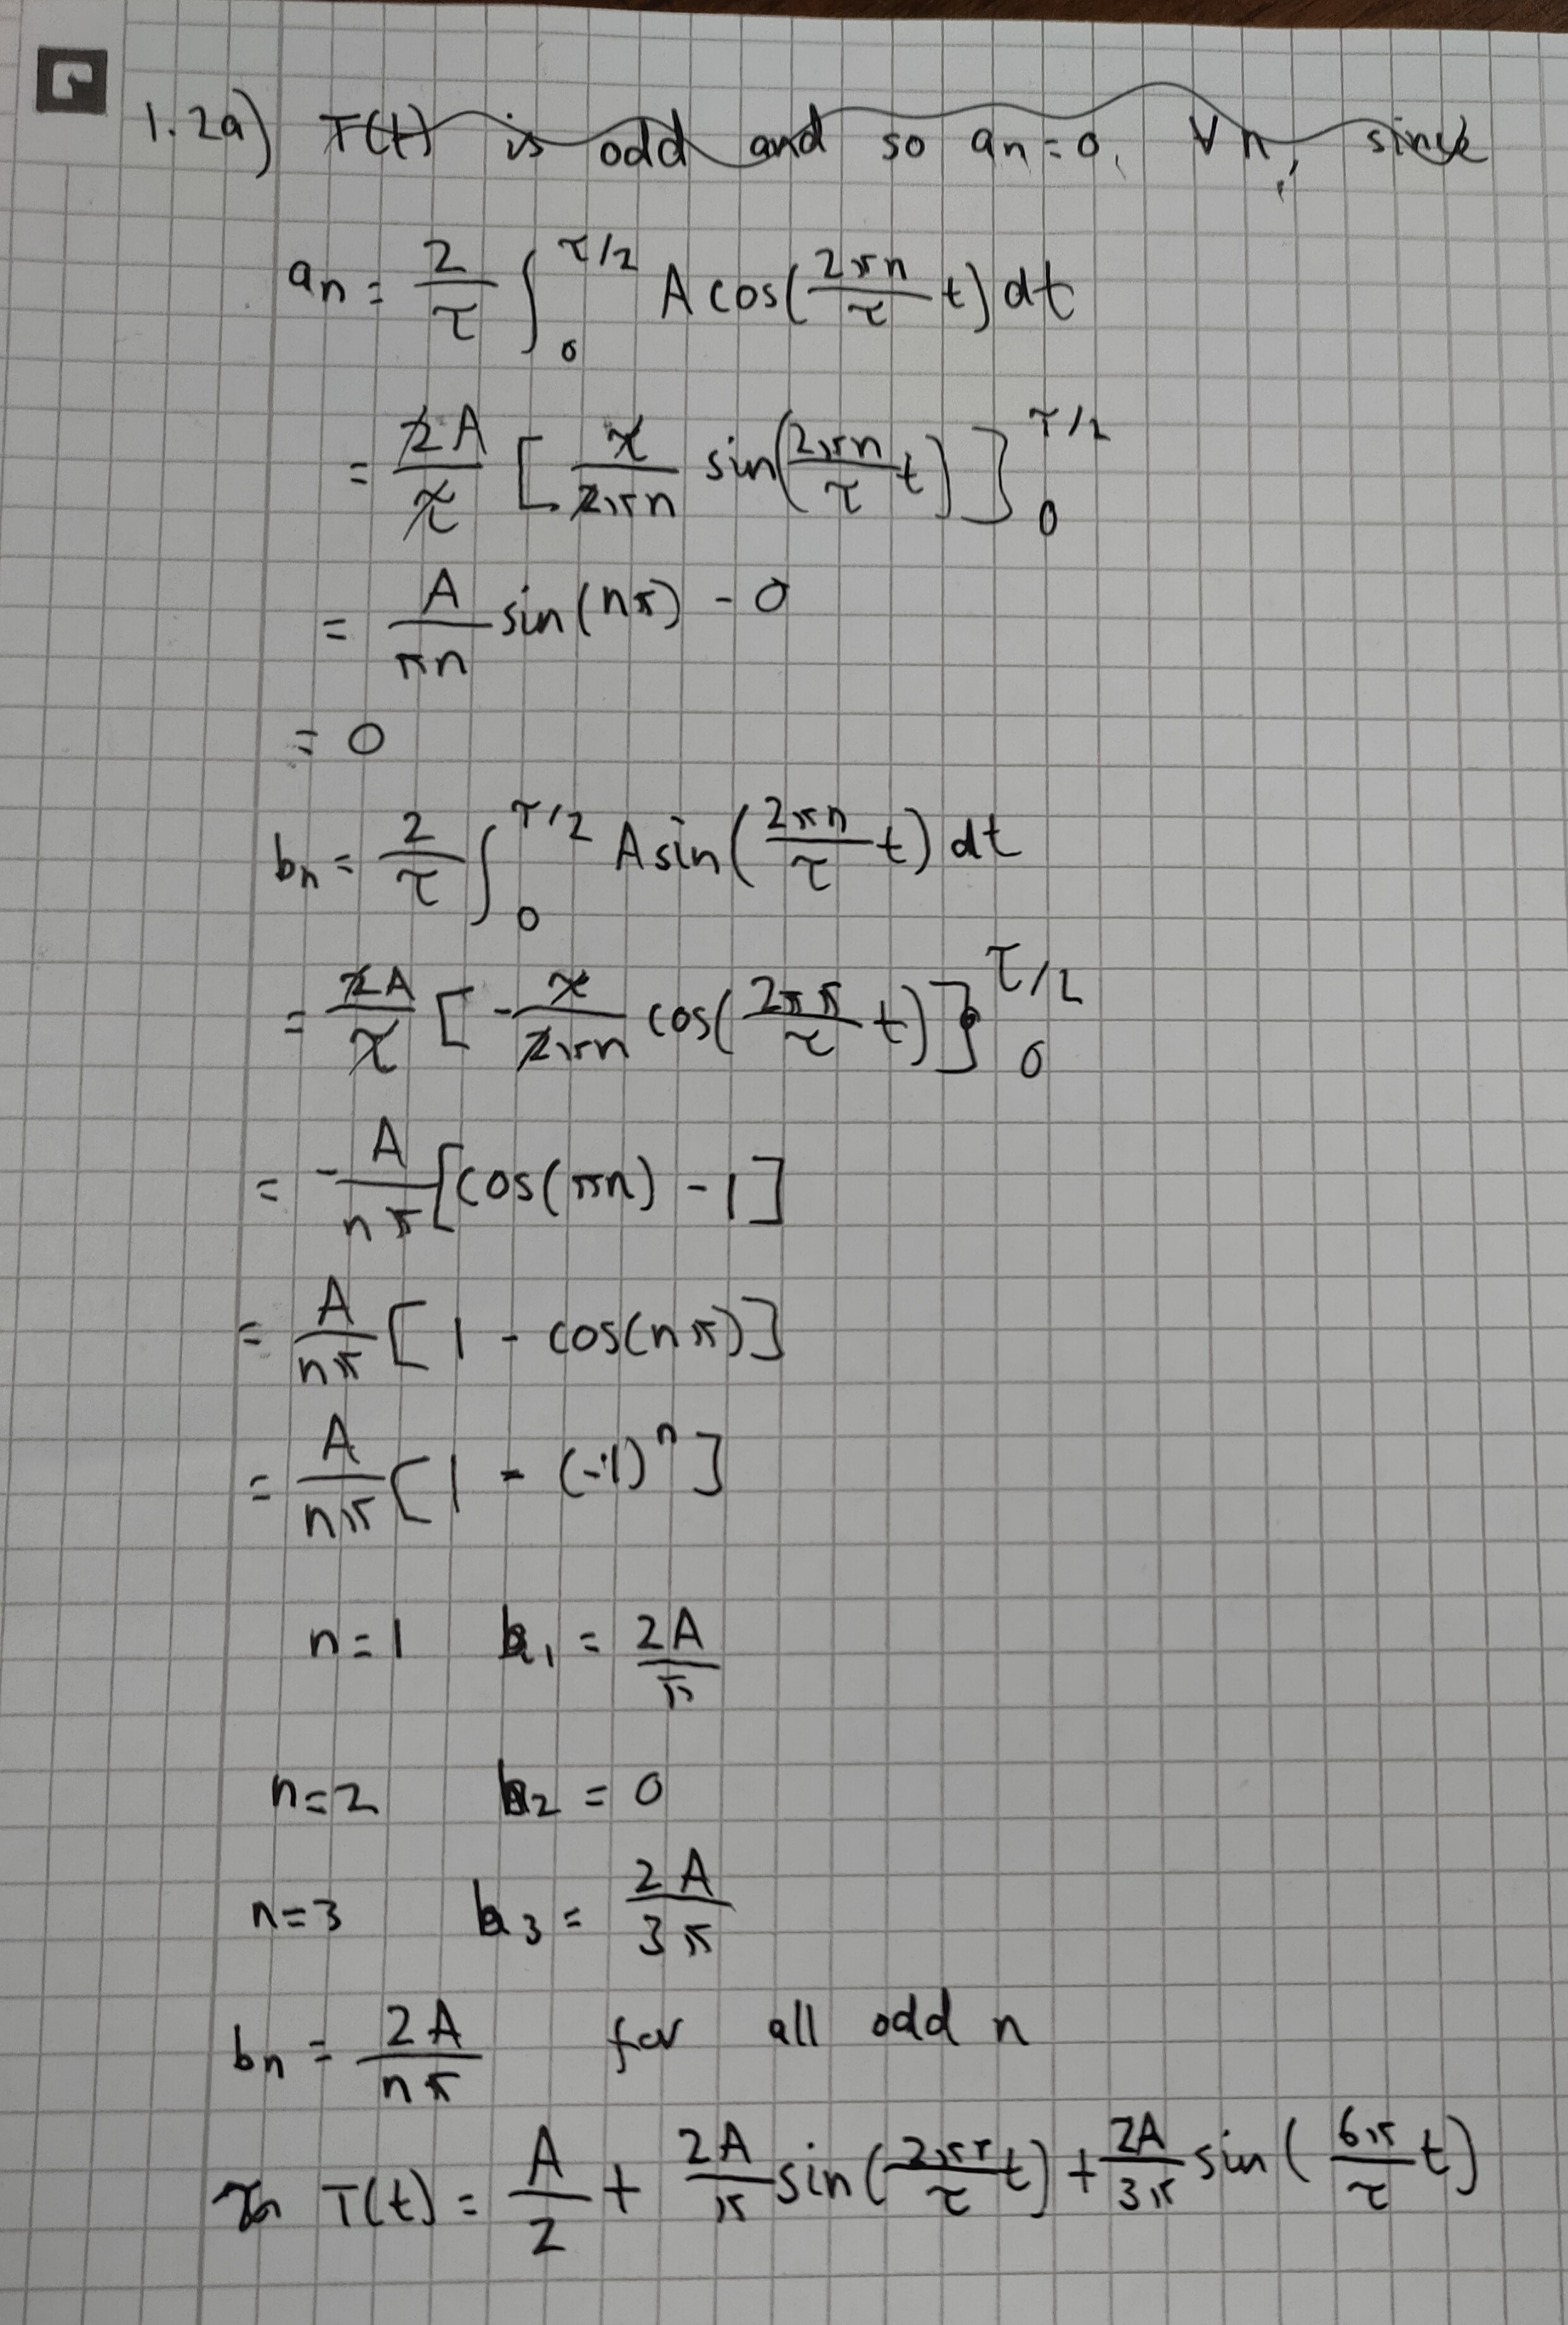 1.2a) T(t) is odd and so an = 0, ∀n, since
an = 2/τ ∫₀^(τ/2) A cos(2πn/τ t) dt
= 2A/τ [τ/2πn sin(2πn/τ t)]₀^(τ/2)
= A/πn sin(nπ) - 0
= 0
bn = 2/τ ∫₀^(τ/2) A sin(2πn/τ t) dt
= 2A/τ [-τ/2πn cos(2ππ/τ t)]₀^(τ/2)
= -A/nπ [cos(πn) - 1]
= A/nπ [1 - cos(nπ)]
= A/nπ [1 - (-1)ⁿ]
n=1 b₁ = 2A/π
n=2 b₂ = 0
n=3 b₃ = 2A/3π
bn = 2A/nπ for all odd n
T(t) = A/2 + 2A/π sin(2π/τ t) + 2A/3π sin(6π/τ t)